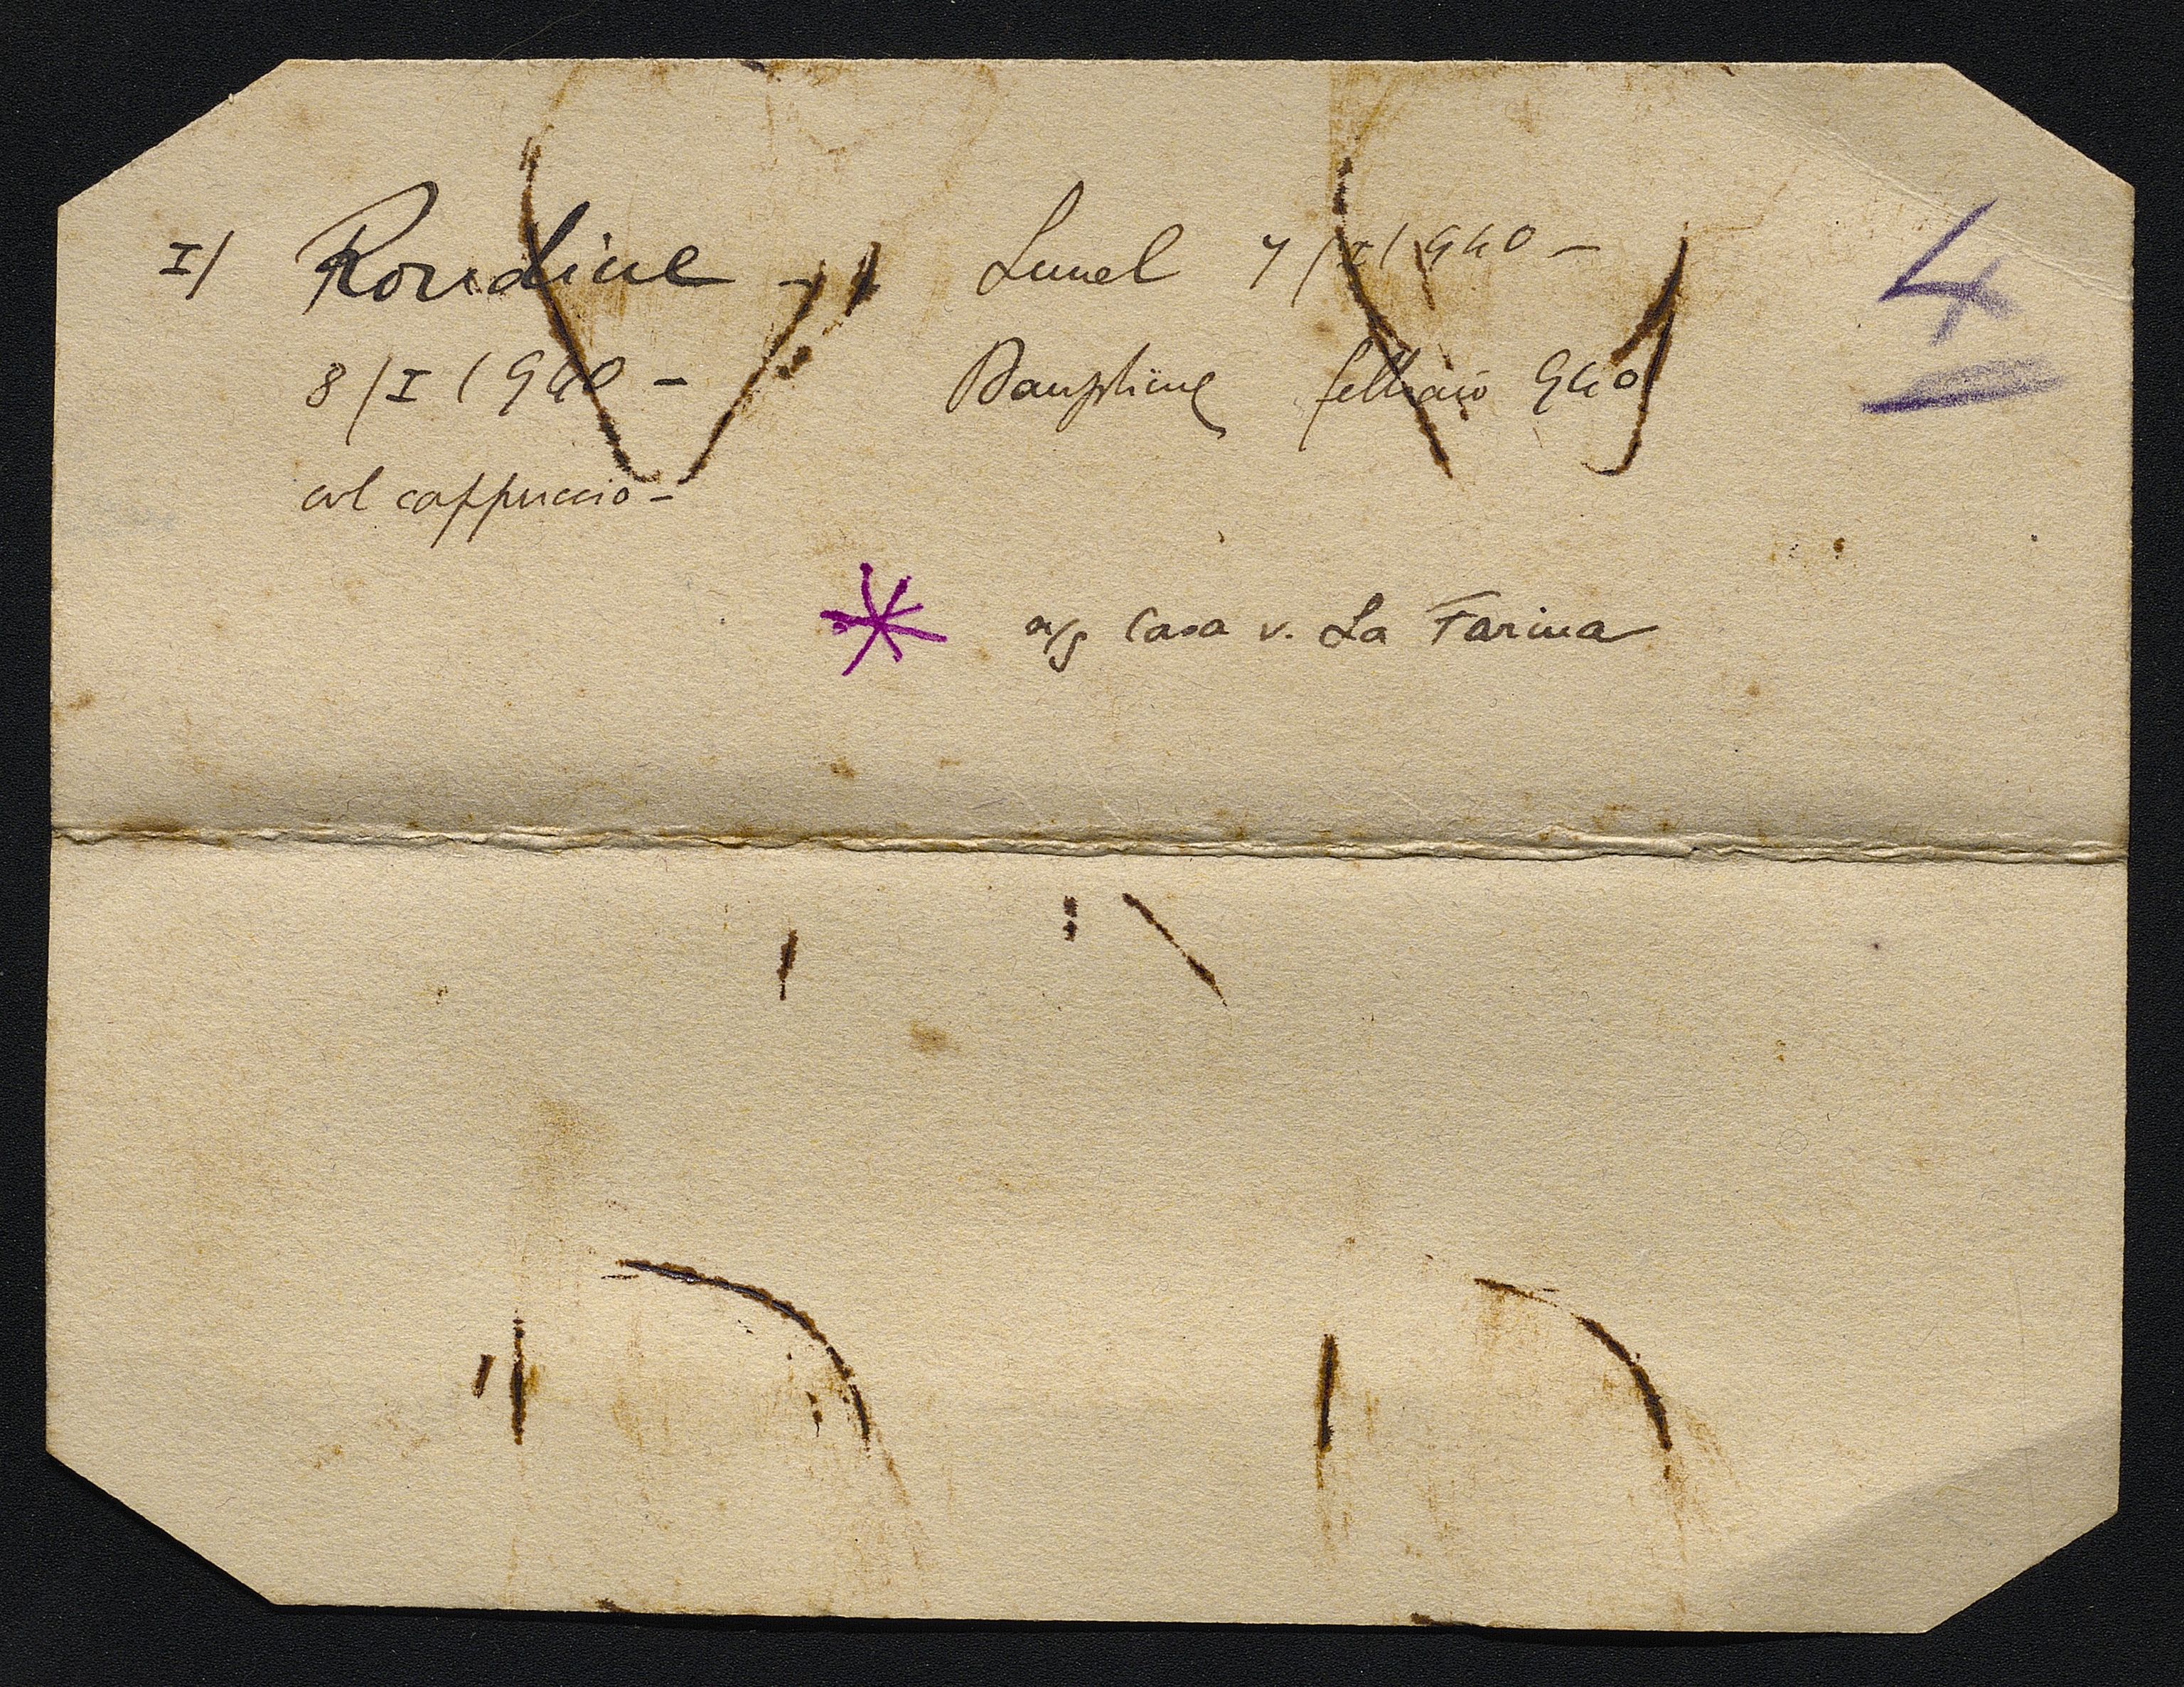 I/ Rondine - Lunel 7/I/940 -
8/I/940 - Dauphine febbraio 940
col cappuccio -
casa v. La Farina
4